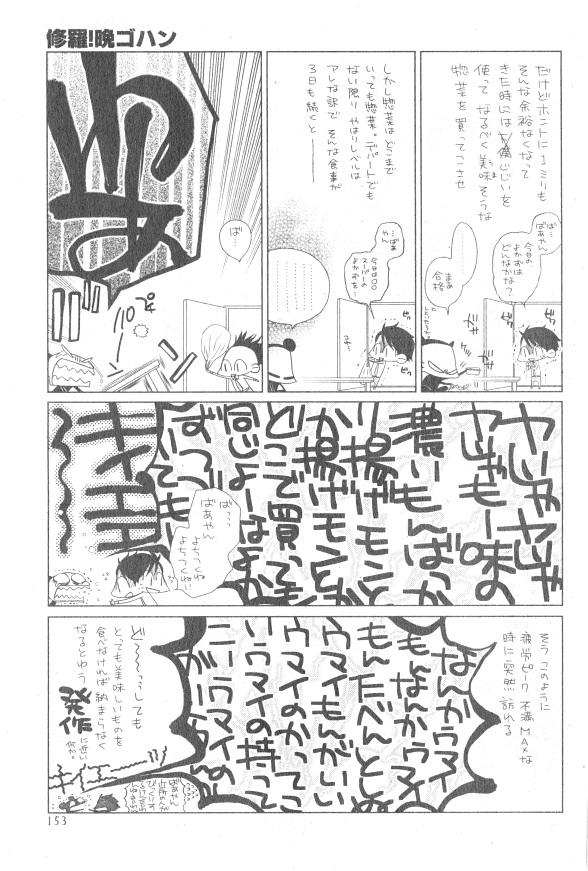 修羅!晩ゴハン
だけどホントに1ミリも
そんな余裕なくなって
きた時には
使って なるべく美味そうな
惣菜を買ってこさせ
ば…
ばあやん
今日の
よかずは
どんなかな?
まあ
合格
しかし惣菜はどこまで
いっても惣菜。デパートでも
ない限り やはりレベルは
アレな訳で そんな食事が
3日も続くと―
…ばぁ
やん
今日は○○
スーパーの
よかずを…
ば…
やじゃヤじゃ
やじゃもー味の
濃いもんばっか
り揚げモンとか
か揚げモンとか
どこで買っても
同じよーなよか
ずばっつでも
キイエエ
ばっ…
ばあやん
よちつくわ
よちつくね!!
そう このように
疲労ピーク 不満MAXな
時に突然 訪れる
なんかウマイ
もんなんかウマイ
もんたべんとし
ウマイもんがいい
ウマイのかってこ
いウマイの持って
こーウマイの
がいーん
ど〜〜〜〜しても
とっても美味しいものを
食べなければ納まらなく
なるとゆう
発作
に近い
何か。
ばあやん
近所の人が
びっくりす
153